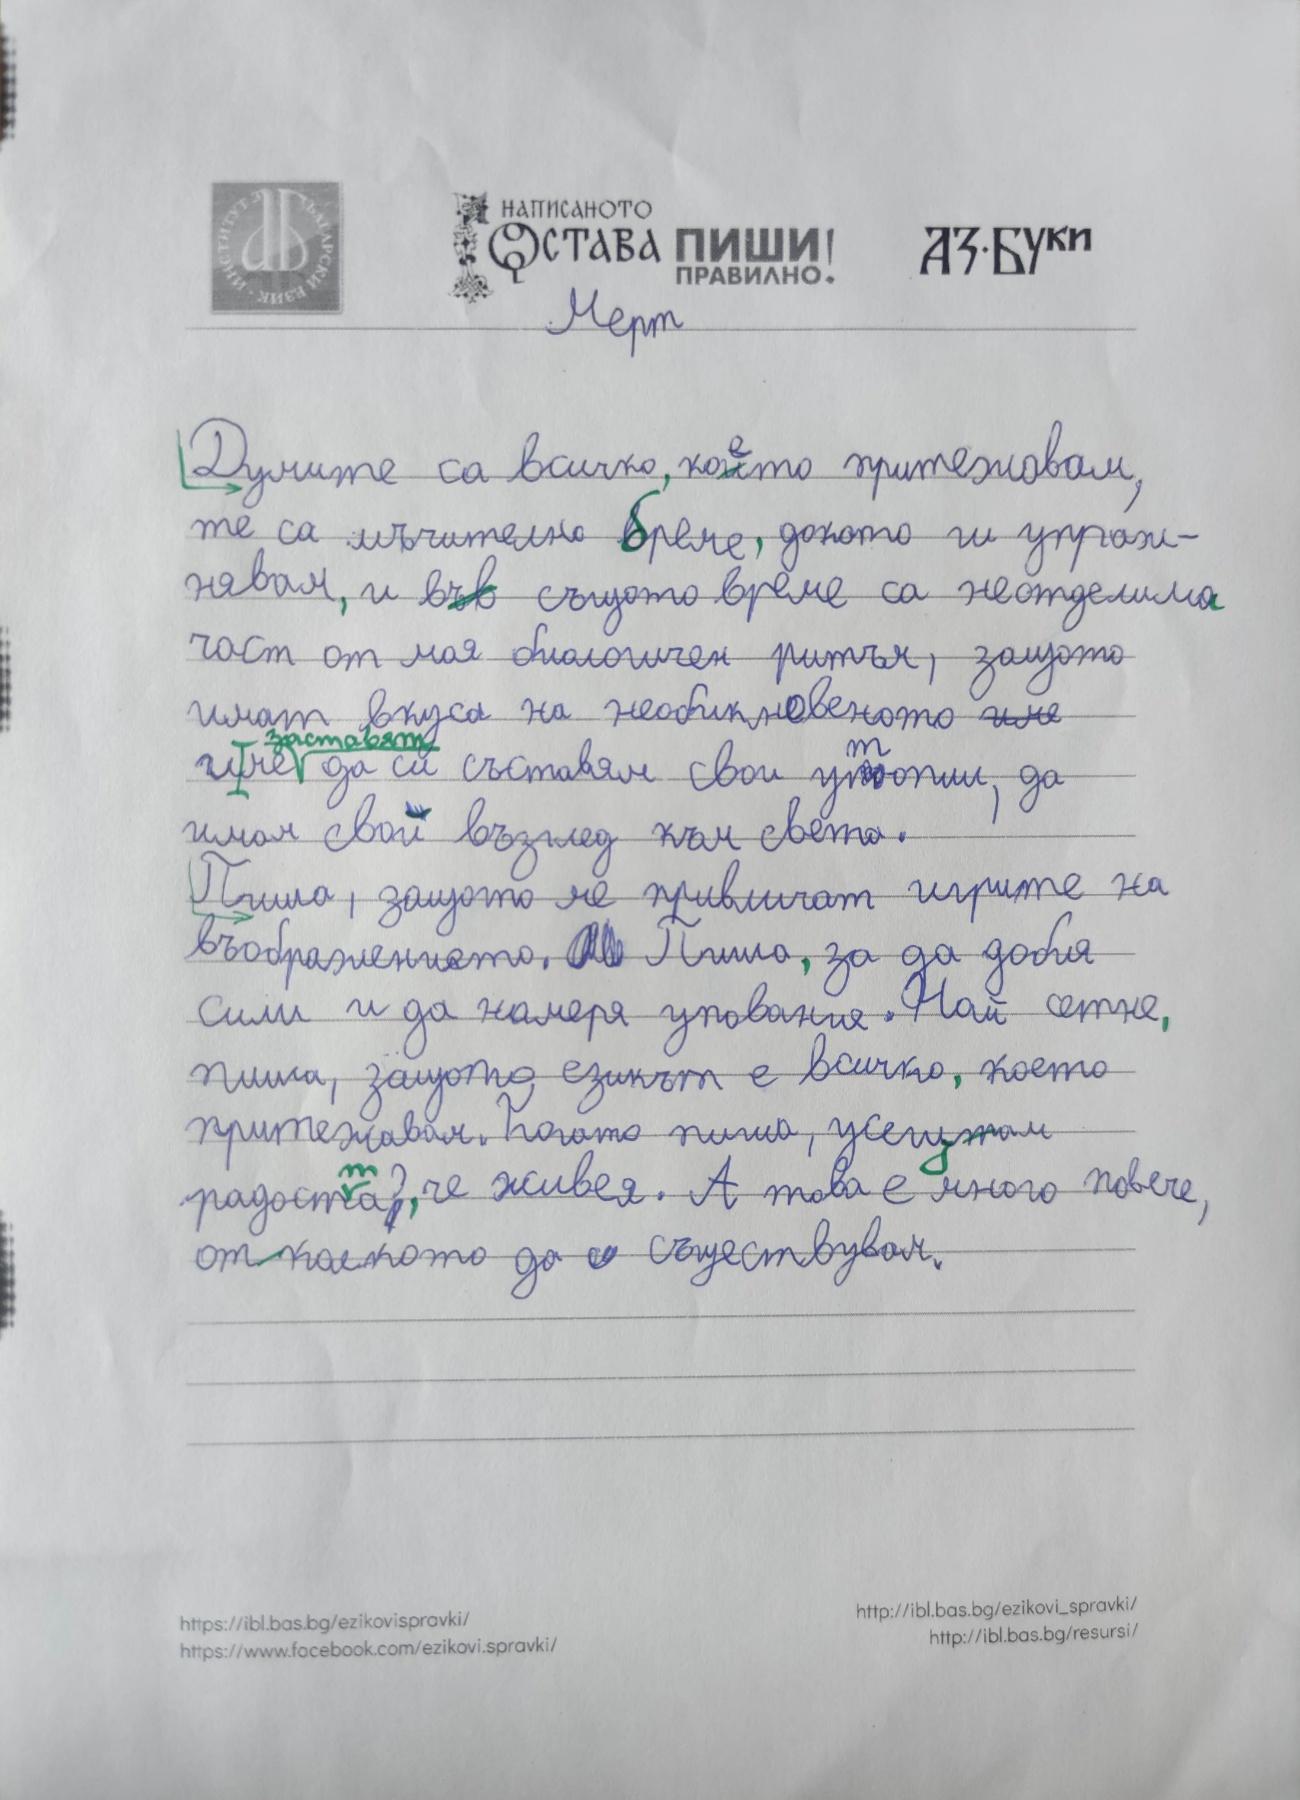 ИНСТИТУТ ЗА БЪЛГАРСКИ ЕЗИК
НАПИСАНОТО
ОСТАВА ПИШИ
ПРАВИЛНО!
АЗ·БУКИ
Мерт
Думите са всичко, което притежавам,
те са мъчително бреме, докато ги упраж-
нявам, и в същото време са неотделима
част от моя биологичен ритъм, защото
имат вкуса на необикновеното
заставят
и ме да си съставям свои утопии, да
имам свой възглед към света.
Пиша, защото ме привличат игрите на
въображението. Пиша, за да добия
сили и да намеря упования. Най сетне,
пиша, защото езикът е всичко, което
притежавам. Когато пиша, усещам
радостта, че живея. А това е много повече,
от колкото да съществувам.
https://ibl.bas.bg/ezikovispravki/
https://www.facebook.com/ezikovi.spravki/
http://ibl.bas.bg/ezikovi_spravki/
http://ibl.bas.bg/resursi/